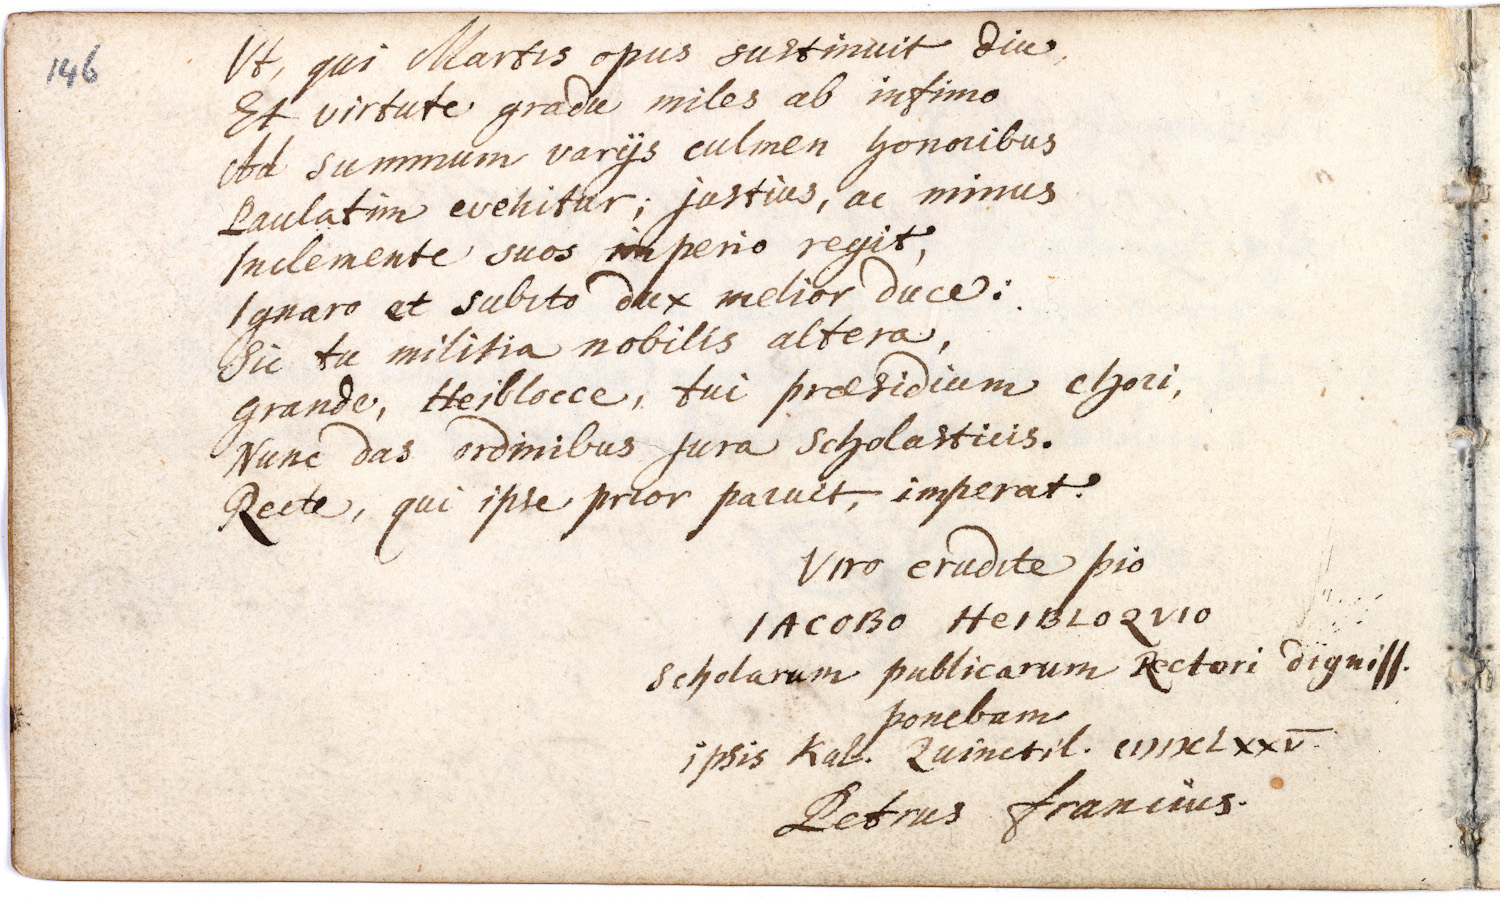 146
Ut, qui Martis opus sustinuit diu,
Et virtute gradu miles ab infimo
Ad summum varijs culmen honoribus
Paulatim evehitur; justius, ac minus
Inclemente suos imperio regit,
Ignaro et subito dux melior duce:
Sic tu militia nobilis altera,
grande, Heiblocce, tui præsidium chori,
Nunc das ordinibus jura scholasticis.
Recte, qui ipse prior paruit, imperat.
Viro erudite pio
IACOBO HEIBLOQVIO
Scholarum publicarum Rectori digniss.
ponebam
ipsis Kal. Quinctil. CIƆIƆCLXXV.
Petrus Francius.